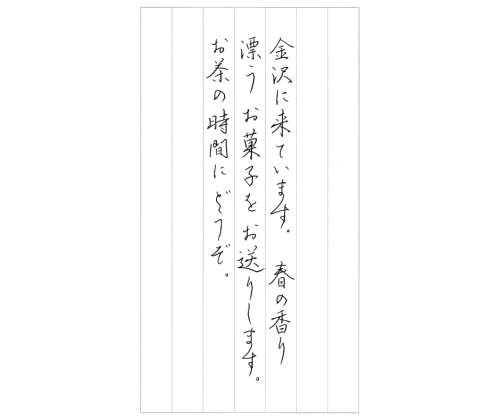 金沢に来ています。 春の香り
漂う お菓子を お送りします。
お茶の時間に どうぞ。